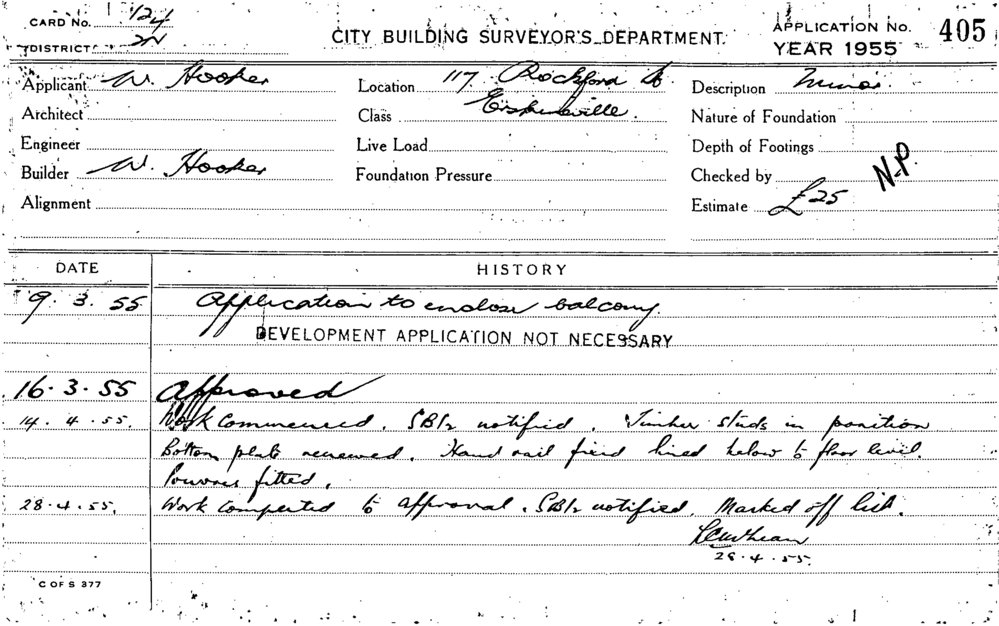 CARD No. 124
DISTRICT 2N
CITY BUILDING SURVEYOR'S DEPARTMENT.
APPLICATION No. 405
YEAR 1955
Applicant W. Hooker
Location 117 Rockford St
Description Minor.
Architect
Class Erskineville.
Nature of Foundation
Engineer
Live Load
Depth of Footings
Builder W. Hooker
Foundation Pressure
Checked by N.P.
Alignment
Estimate £25
DATE HISTORY
9. 3. 55 Application to enclose balcony.
DEVELOPMENT APPLICATION NOT NECESSARY
16.3.55 Approved
14.4.55. Work commenced. SB1/2 notified. Timber studs in position
Bottom plate renewed. Hand rail fixed lined below to floor level.
Louvres fitted.
28.4.55. Work completed to approval. SB1/2 notified. Marked off list.
28.4.55.
C OF S 377